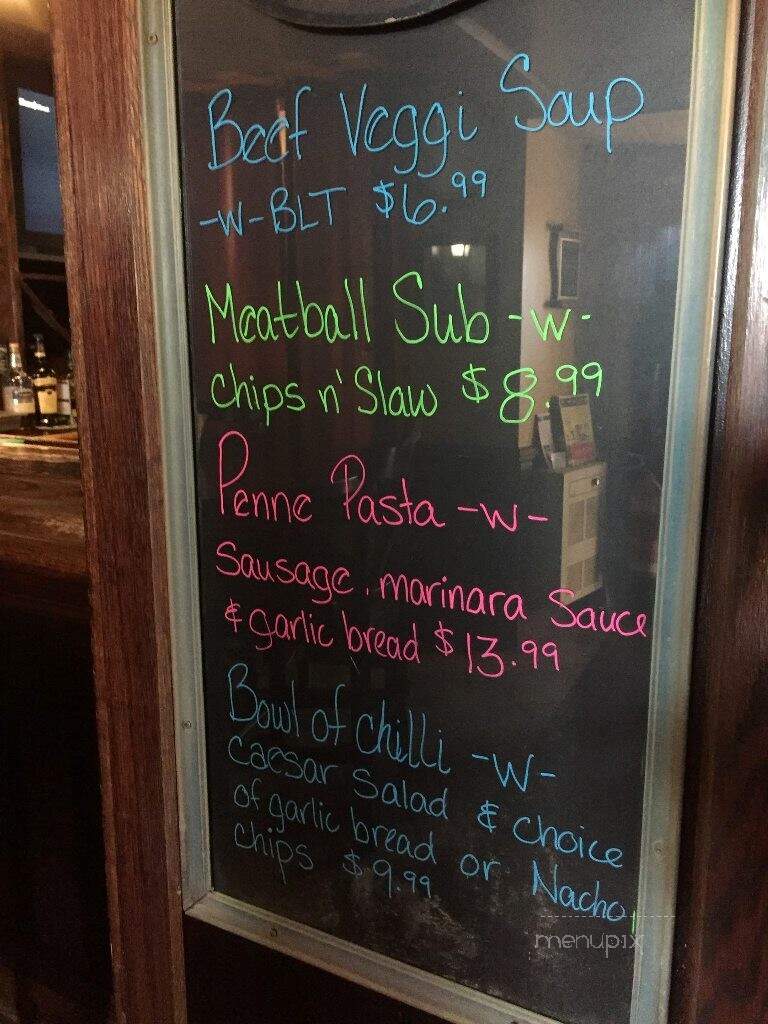 Beef Veggi Soup
-W-BLT $6.99
Meatball Sub -W-
Chips n' Slaw $8.99
Penne Pasta -W-
Sausage, marinara Sauce
& garlic bread $13.99
Bowl of Chilli -W-
Caesar Salad & Choice
of garlic bread or Nacho
Chips $9.99
menupix